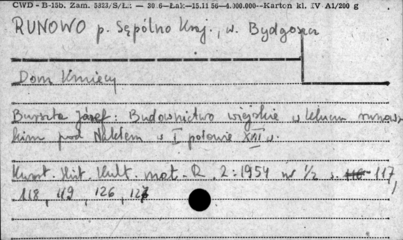 CWD - B-15b. Zam. 5321/S/Ł1 — 30.6—Łak—15.11 56—4.000.000—Karton kl. IV A1/200 g
RUNOWO p. Sępólno Kraj., w. Bydgoszcz
Dom Kmiecy
Burszta Józef: Budownictwo wiejskie w kluczu runow-
skim pod Nakłem w I połowie XIX w.
Kwart. Hist. Kult. mat. R. 2: 1954 nr 1/2 s. 117,
118, 119, 126, 127